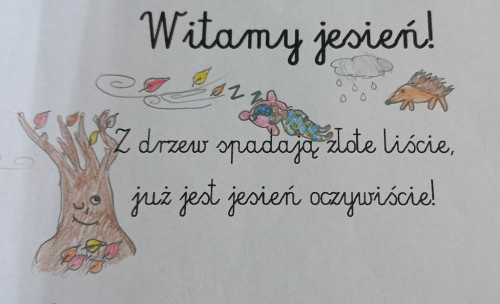 Witamy jesień!
z z
Z drzew spadają złote liście,
już jest jesień oczywiście!